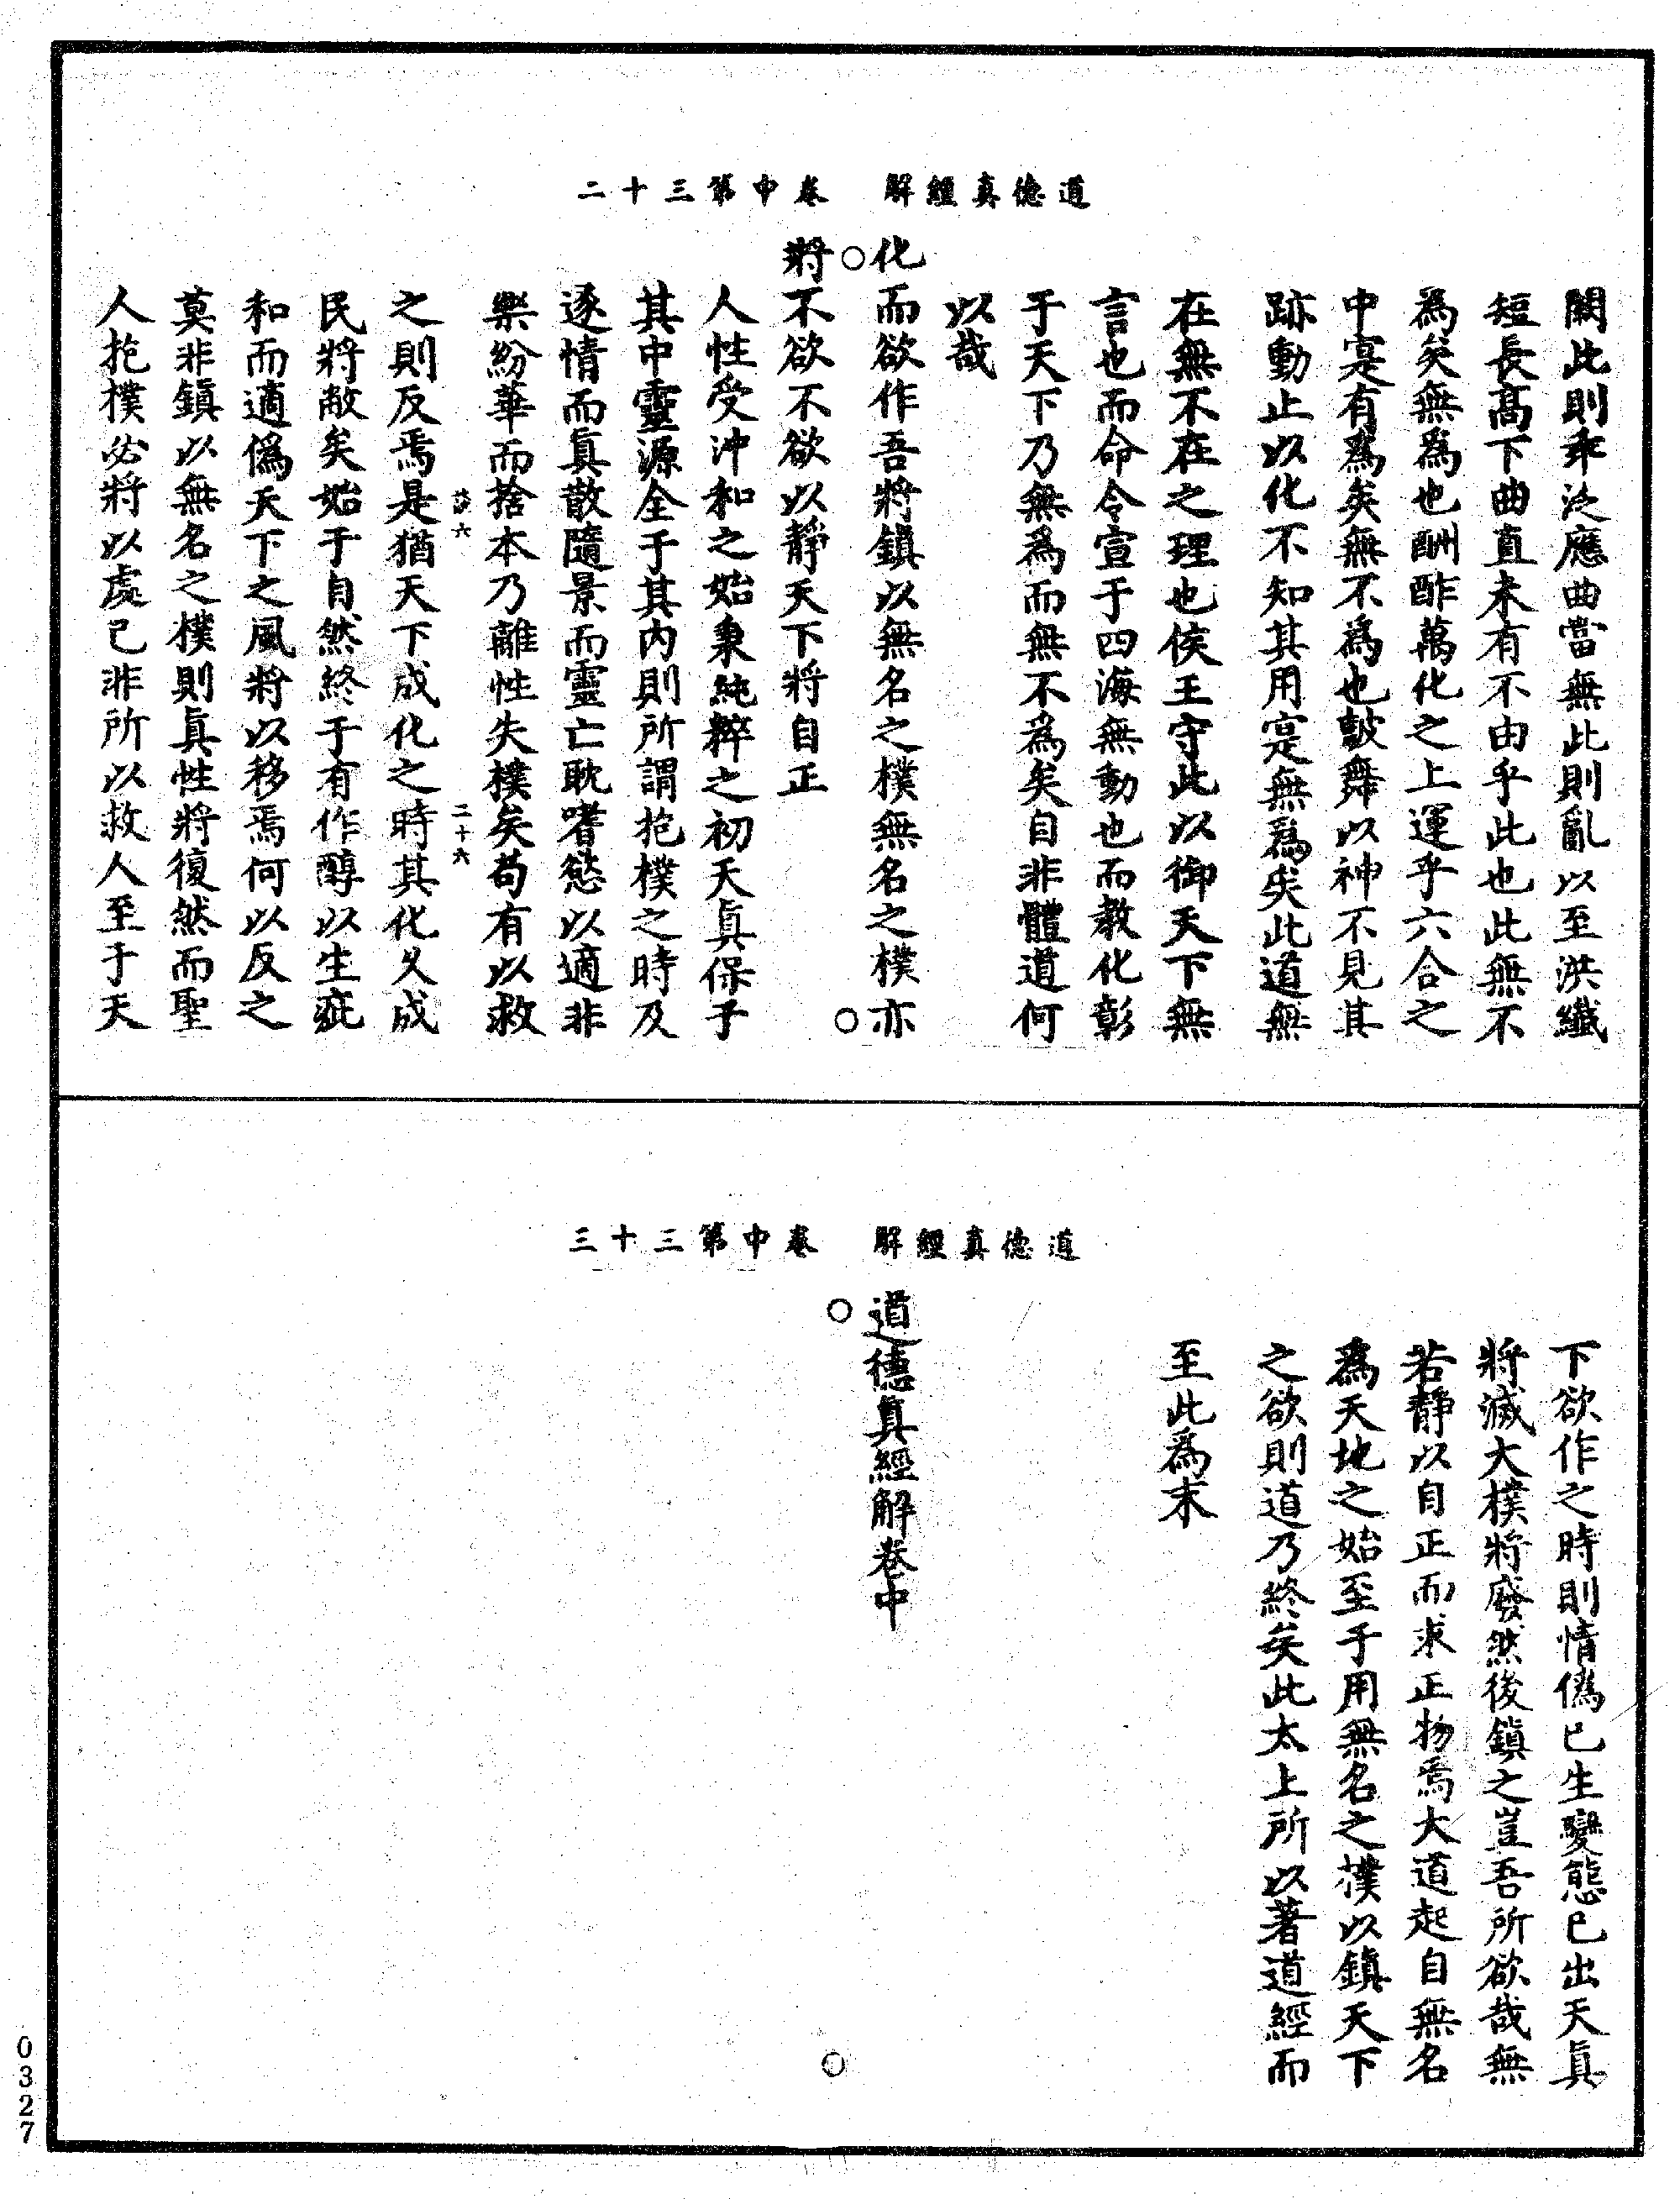 道德真經解　卷中第三十二
闕此則乖泛應曲當無此則亂以至洪纖
短長高下曲直未有不由乎此也此無不
為矣無為也酬酢萬化之上運乎六合之
中寔有為矣無不為也皷舞以神不見其
跡動止以化不知其用寔無為矣此道無
在無不在之理也侯王守此以御天下無
言也而命令宣于四海無動也而教化彰
于天下乃無為而無不為矣自非體道何
以哉
化而欲作吾將鎮以無名之樸無名之樸亦
將不欲不欲以靜天下將自正
人性受沖和之始稟純粹之初天真保于
其中靈源全于其內則所謂抱樸之時及
逐情而真散隨景而靈亡耽嗜慾以適非
樂紛華而捨本乃離性失樸矣苟有以救
六　二十六
之則反焉是猶天下成化之時其化乆成
民將敝矣始于自然終于有作醇以生疵
和而適偽天下之風將以移焉何以反之
莫非鎮以無名之樸則真性將復然而聖
人抱樸必將以處已非所以救人至于天
道德真經解　卷中第三十三
下欲作之時則情偽已生變態已出天真
將滅大樸將廢然後鎮之豈吾所欲哉無
若靜以自正而求正物焉大道起自無名
為天地之始至于用無名之樸以鎮天下
之欲則道乃終矣此太上所以著道經而
至此為末
道德真經解卷中
0327